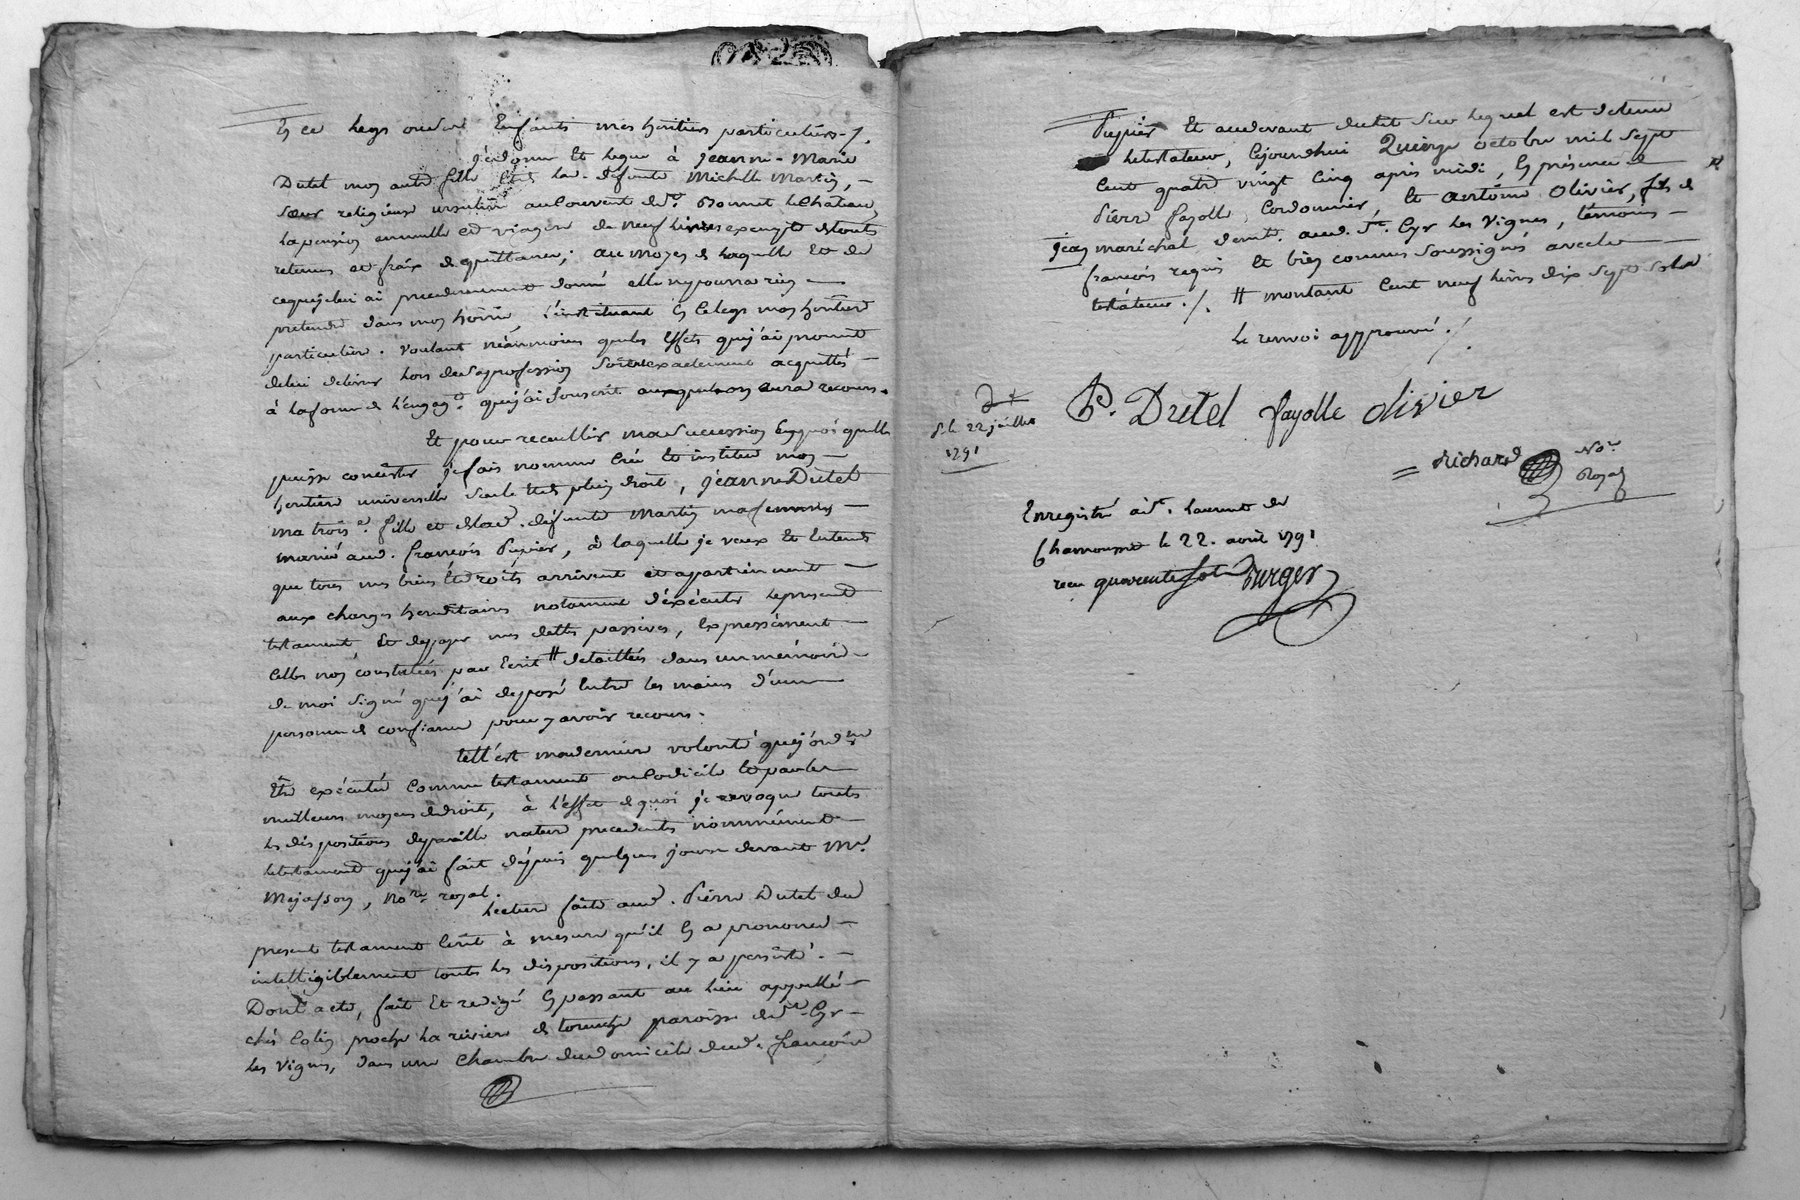 En ce legs ond. enfants mes heritiers particuliers ./.
je donne et legue à jeanne-Marie
Dutel mon autre fille et de lad. defunte Michelle Martin, —
sœur religieuse ursuline au Couvent de St. Bonnet le Chateau,
la pension annuelle et viagere de neuf livres exempte de touts
retenus et fraix de quittance; au moyen de laquelle et de
ceque je lui ai precedemment donné elle ny pourra rien —
pretendre dans mon hoirie, l'instituant en ce legs mon heritiere
particuliere. voulant néanmoins que les effets que j'ai promit
de lui delivrer lors de sa profession soient exactement acquittés —
à la forme de l'engagt. que j'ai souscrit auxquels on aura recours.
Et pour recueillir ma succession en quoi quelle
puisse consister je fais nomme crée et institue mon —
heritiere universelle seule et de plein droit, jeanne Dutel
ma troise. fille et de lad. defunte Martin ma femme —
mariée aud. françois Pupier, à laquelle je veux et entends
que tous mes biens et droits arrivent et apartiennent —
aux charges hereditaires notamment d'exécuter le present
testament, et de payer mes dettes passives, expressément —
celles non constatées par ecrit # detaillées dans un mémoire —
de moi signé que j'ai deposé entre les mains d'une —
personne de confiance pour y avoir recours.
tell'est ma derniere volonté que j'ordonne
être exécutée comme testament ou codicile et par les —
meilleurs moyens de droit, à l'effet de quoi je revoque touts
les dispositions de pareille nature precedentes nommément —
le testament que j'ai fait depuis quelques jours devant Me.
Mejasson, nore. royal.
Lecture faite aud. Pierre Dutel du
present testament ecrit à mesure qu'il en a prononcé —
intelligiblement touts les dispositions, il y a persisté. —
Dont acte, fait et redigé en passant au lieu appellé —
chés Colin proche la riviere de toranche paroisse de St. Cyr —
les Vignes, dans une chambre du domicile dud. françois
Pupier et au devant du lit sur lequel est detenu
le testateur, cejourdhui Quinze octobre mil sept
cent quatre vingt cinq après midi, en présence de —
Pierre fayolle, Cordonnier, et antoine Olivier, fils de #
jean maréchal demts. aud. St. Cyr les Vignes, témoins —
françois requis et bien connus soussignés avec le —
testateur ./. # montant cent neuf livres dix sept sols
Le renvoi approuvé ./.
P. Dutel fayolle olivier
22 juillet
1791
Richard Nore.
Royal
Enregistré à St. Laurent de
Chamousset le 22. août 1791
reçu quarante sols Burger